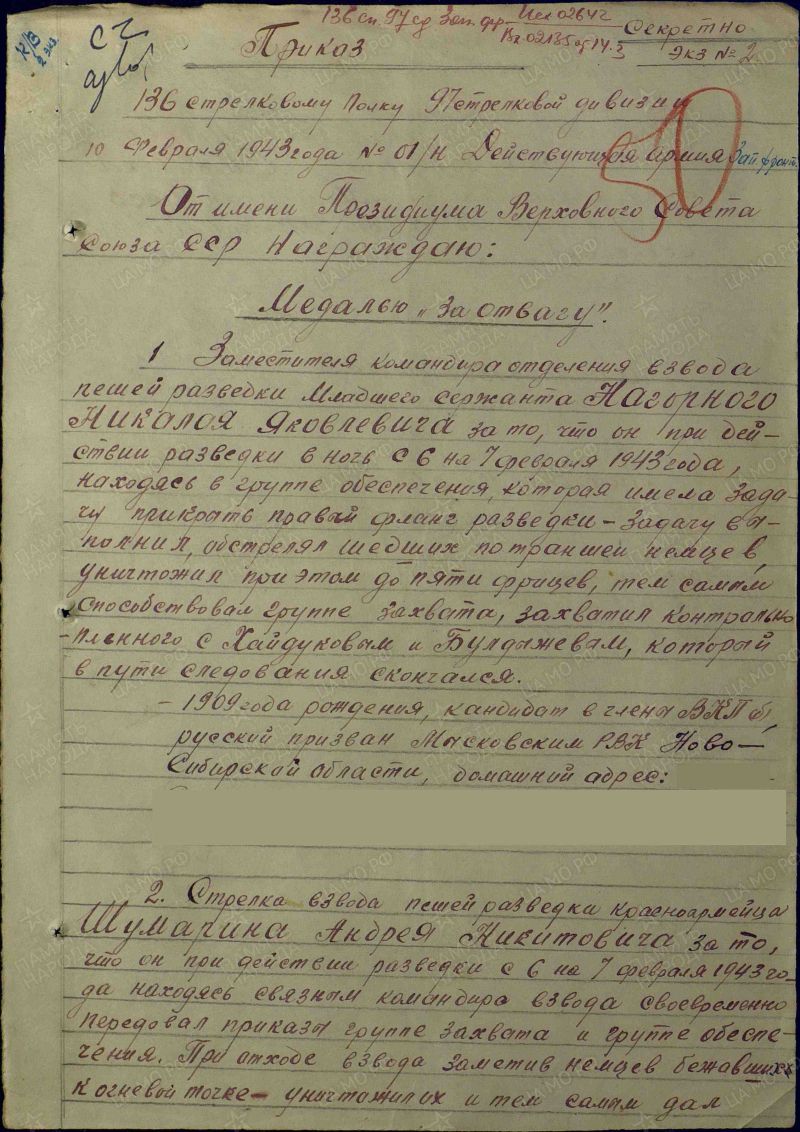 136 сп. 97 сд Зап. фр. Исх 02642
Вх 02135 от 14.3
Секретно
Экз № 2
Приказ
136 стрелковому полку 97 стрелковой дивизии
10 Февраля 1943 года № 01/н Действующая армия Зап фронт.
50
От имени Президиума Верховного Совета
Союза ССР Награждаю:
Медалью „За отвагу".
1 Заместителя командира отделения взвода
пешей разведки Младшего сержанта Нагорного
Никалоя Яковлевича за то, что он при дей-
ствии разведки в ночь с 6 на 7 февраля 1943 года,
находясь в группе обеспечения, которая имела зада-
чу прикрыть правый фланг разведки - задачу вы-
полнил, обстрелял шедших по траншеи немцев,
уничтожил при этом до пяти фрицев, тем самым
способствовал группе захвата, захватил контрольно
-пленного с Хайдуковым и Булдыжевам, который
в пути следования скончался.
- 1909 года рождения, кандидат в члены ВКП б,
русский призван Мысковским РВК Ново-
Сибирской области, домашний адрес:
2. Стрелка взвода пешей разведки красноармейца
Шумарина Андрея Никитовича за то,
что он при действии разведки с 6 на 7 февраля 1943 го-
да находясь связным командира взвода своевременно
передовал приказы группе захвата и группе обеспе-
чения. При отходе взвода заметив немцев бежавших
к огневой точке - уничтожил их и тем самым дал